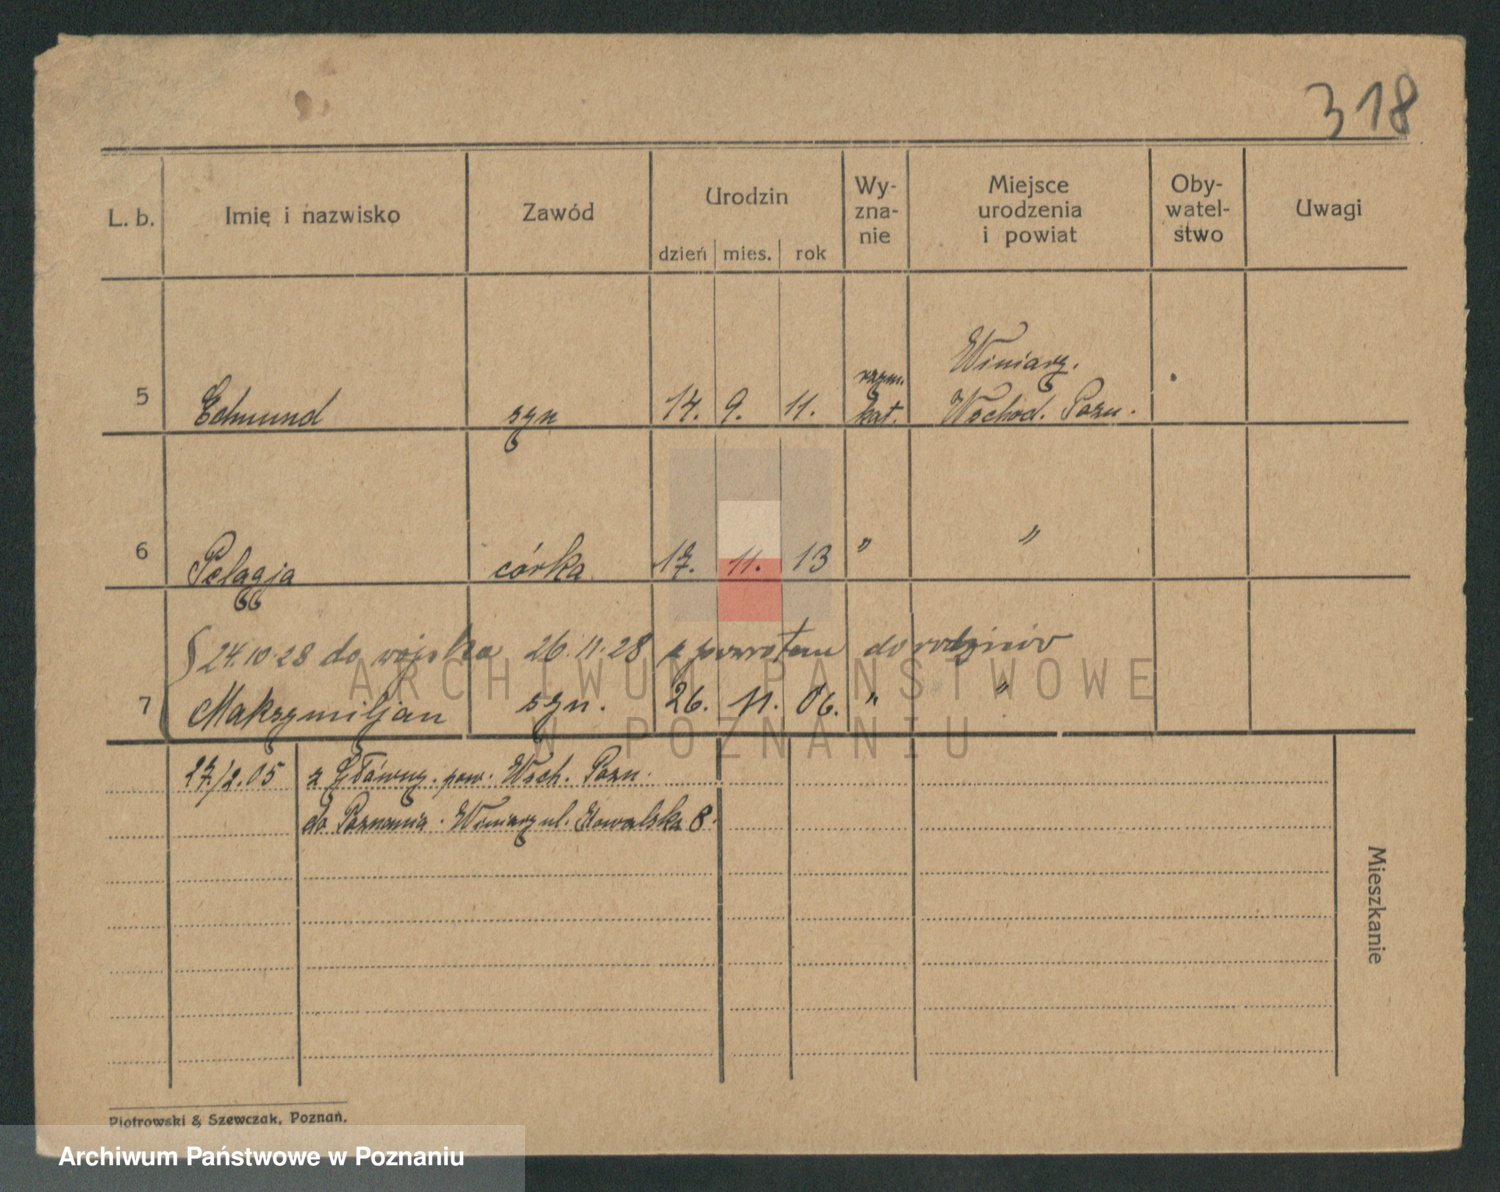 318
L. b. Imię i nazwisko Zawód Urodzin Wy- zna- nie Miejsce urodzenia i powiat Oby- watel- stwo Uwagi
dzień mies. rok
Winiary.
5 Edmund syn 14. 9. 11. rzym. kat. Wschod. Pozn.
6 Pelagja córka 17. 11. 13 " "
24.10.28 do wojska 26.11.28 z powrotem do rodziców
7 Maksymiljan syn. 26. 11. 06. " "
27/2.05 z Główny. pow. Wsch. Pozn.
do Poznania. Winiary ul. Kowalska 8.
Mieszkanie
Piotrowski & Szewczak, Poznań.
ARCHIWUM PAŃSTWOWE
W POZNANIU
Archiwum Państwowe w Poznaniu